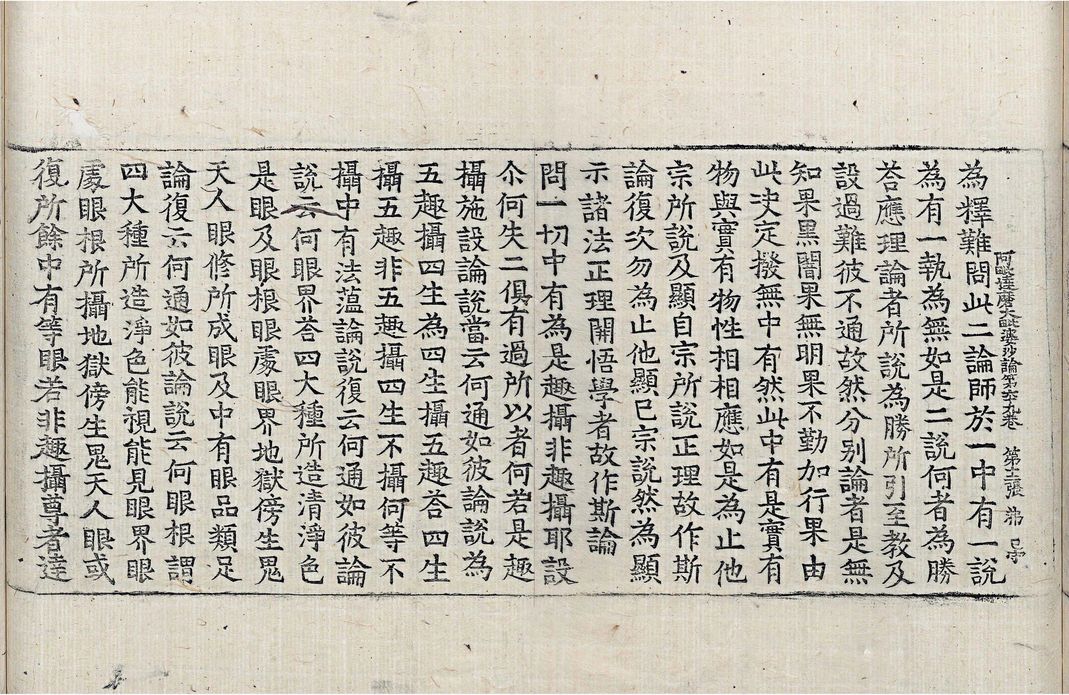 阿毗達磨大毗婆沙論第六十九卷 第二張 弟
為釋難問此二論師於一中有一說
為有一執為無如是二說何者為勝
荅應理論者所說為勝所引至教及
設過難彼不通故然分别論者是無
知果黑闇果無明果不勤加行果由
此決定撥無中有然此中有是實有
物與實有物性相相應如是為止他
宗所說及顯自宗所說正理故作斯
論復次勿為止他顯已宗說然為顯
示諸法正理開悟學者故作斯論
問一切中有為是趣攝非趣攝耶設
尒何失二俱有過所以者何若是趣
攝施設論說當云何通如彼論說為
五趣攝四生為四生攝五趣荅四生
攝五趣非五趣攝四生不攝何等不
攝中有法蕰論說復云何通如彼論
說云何眼界荅四大種所造清淨色
是眼及眼根眼處眼界地獄傍生鬼
天人眼修所成眼及中有眼品類足
論復云何通如彼論說云何眼根謂
四大種所造淨色能視能見眼界眼
處眼根所攝地獄傍生鬼天人眼或
復所餘中有等眼若非趣攝尊者達